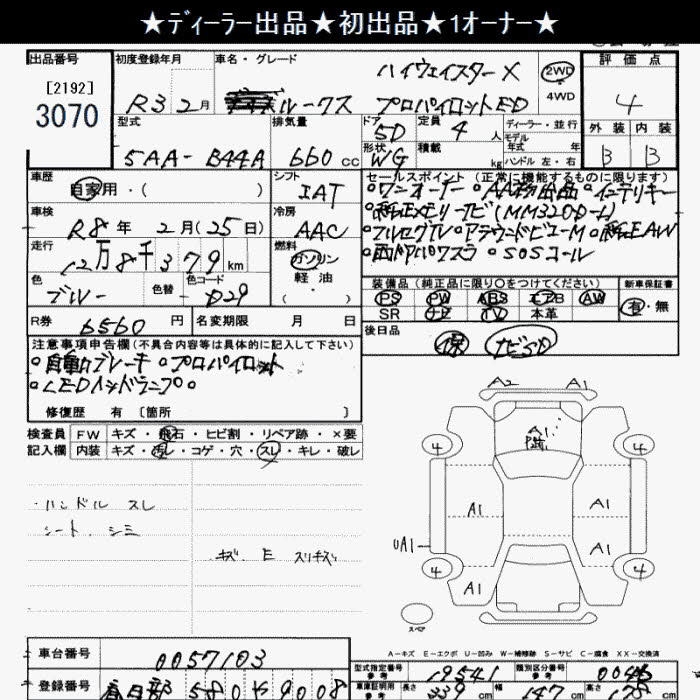 ★ディーラー出品★初出品★1オーナー★
出品番号
[2192]
3070
初度登録年月
R3 2月
車名・グレード
ルークス
ハイウェイスターX
プロパイロットED
2WD
4WD
評価点
4
外装 内装
B B
型式
5AA-B44A
排気量
660 cc
ドア 5D
形状 WG
定員 4 人
積載 kg
ディーラー・並行
モデル
年式 年
ハンドル 左・右
車歴
自家用・( )
シフト
IAT
車検
R8年 2月(25日)
冷房
AAC
走行
12万8千379km
燃料
ガソリン
軽油
・( )
色
ブルー
色替
色コード
R券
6560円
名変期限 月 日
セールスポイント (正常に機能するものに限ります)
・ワンオーナー ・インテリキー
(MM320D-L)
・フルセグTV ・アラウンドビューM
・SOSコール
装備品 (純正品に限り○をつけてください)
PS PW ABS エアB AW
SR ナビ TV 本革
新車保証書
有・無
後日品
保
注意事項申告欄 (不具合内容等は具体的に記入して下さい)
・自動ブレーキ ・プロパイロット
・LEDヘッドランプ
修復歴 有 [箇所 ]
検査員 FW キズ・飛石・ヒビ割・リペア跡・×要
記入欄 内装 キズ・汚レ・コゲ・穴・スレ・キレ・破レ
・ハンドル スレ
シート、シミ
キズ、E スリキズ
A2 A1
A1
4 4
A1 A1
UA1 A1
4 4
A1
スペア
A-キズ E-エクボ U-凹み W-補修跡 S-サビ C-腐食 XX-交換済
車台番号
0057103
登録番号
春日部 580 や 9008
型式指定番号
参考
19541
類別区分番号
参考
車庫証明用
参考
長さ 339 cm
幅 147 cm
高さ cm